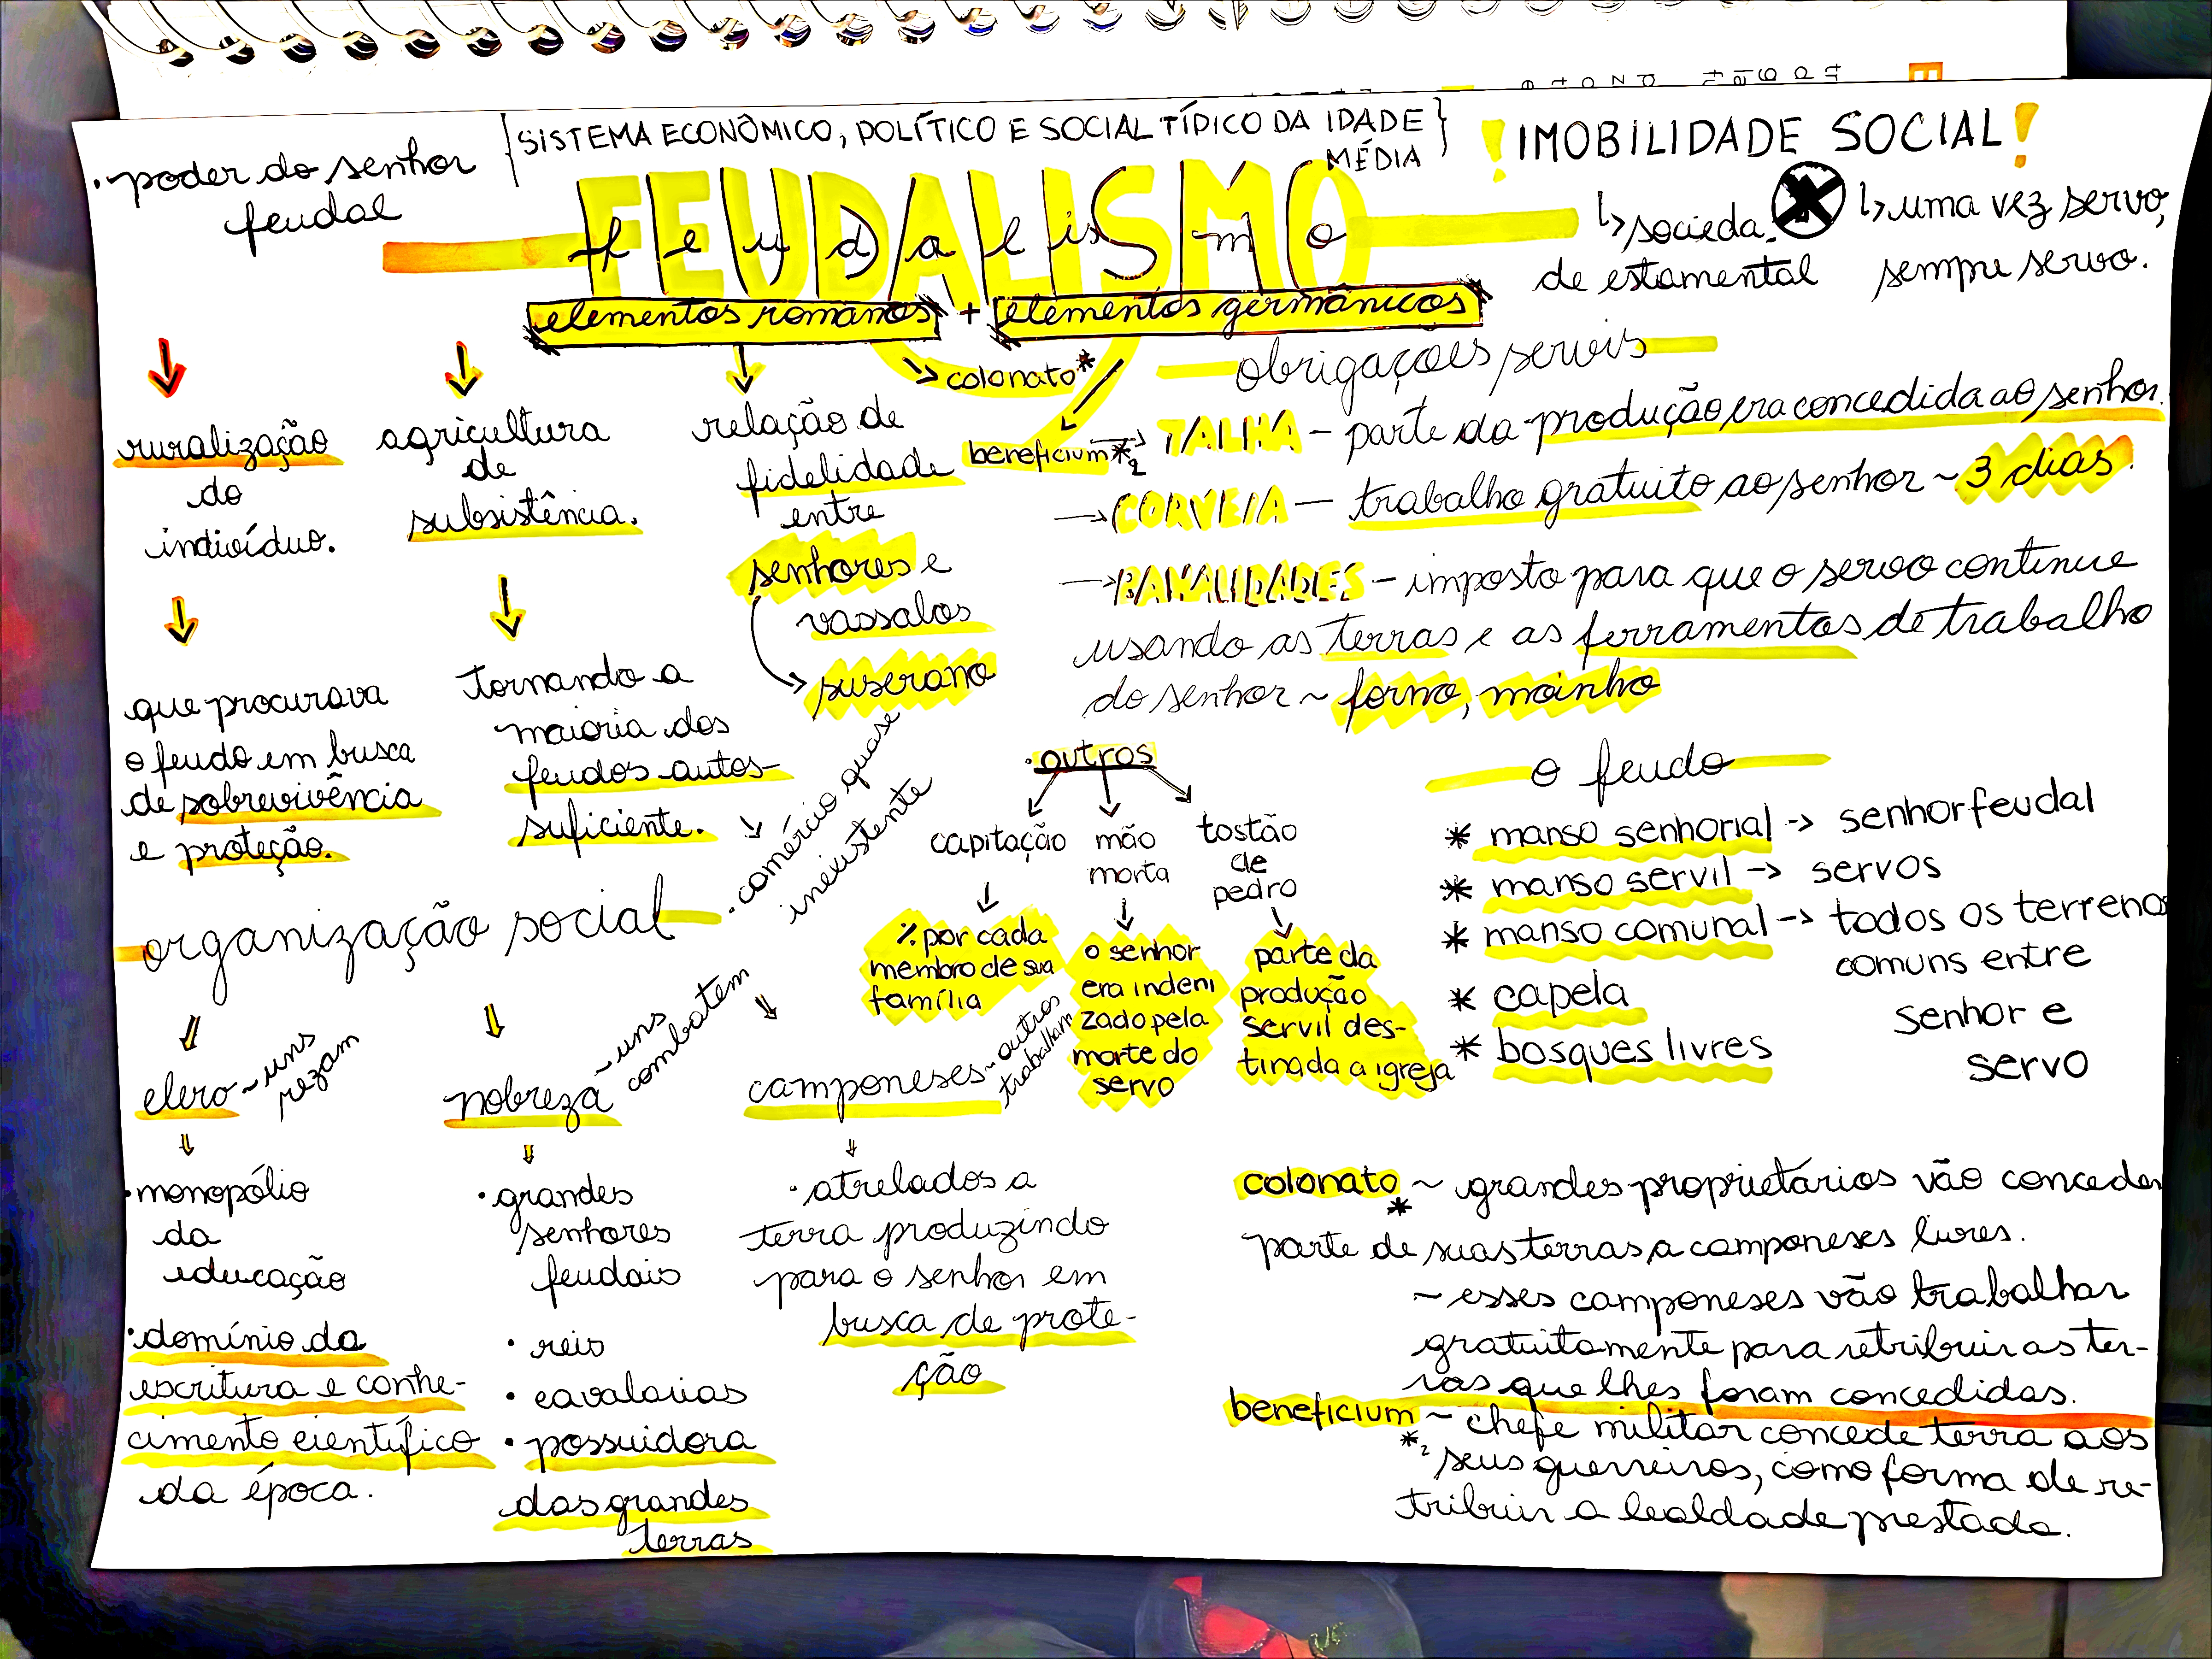 {SISTEMA ECONÔMICO, POLÍTICO E SOCIAL TÍPICO DA IDADE
MÉDIA}
FEUDALISMO
feudalismo
elementos romanos + elementos germânicos
↳ colonato*
beneficium*2
• poder do senhor
feudal
! IMOBILIDADE SOCIAL !
↳ socieda-
de estamental
↳ uma vez servo,
sempre servo.
ruralização
do
indivíduo.
que procurava
o feudo em busca
de sobrevivência
e proteção.
agricultura
de
subsistência.
tornando a
maioria dos
feudos autos-
suficiente.
• comércio quase
inexistente
relação de
fidelidade
entre
senhores e
vassalos
suserano
obrigações servis
→ TALHA – parte da produção era concedida ao senhor.
→ CORVEIA – trabalho gratuito ao senhor ~ 3 dias.
→ BANALIDADES – imposto para que o servo continue
usando as terras e as ferramentas de trabalho
do senhor ~ forno, moinho
• outros
capitação
% por cada
membro de sua
família
mão
morta
o senhor
era indeni
zado pela
morte do
servo
tostão
de
pedro
parte da
produção
servil des-
tinada a igreja
o feudo
* manso senhorial → senhor feudal
* manso servil → servos
* manso comunal → todos os terrenos
comuns entre
senhor e
servo
* capela
* bosques livres
organização social
clero ~ uns
rezam
• monopólio
da
educação
• domínio da
escritura e conhe-
cimento científico
da época.
nobreza ~ uns
combatem
• grandes
senhores
feudais
• reis
• cavalarias
• possuidora
das grandes
terras
camponeses ~ outros
trabalham
• atrelados a
terra produzindo
para o senhor em
busca de prote-
ção
colonato* ~ grandes proprietários vão conceder
parte de suas terras a camponeses livres.
~ esses camponeses vão trabalhar
gratuitamente para retribuir as ter-
ras que lhes foram concedidas.
beneficium*2 ~ chefe militar concede terra aos
seus guerreiros, como forma de re-
tribuir a lealdade prestada.